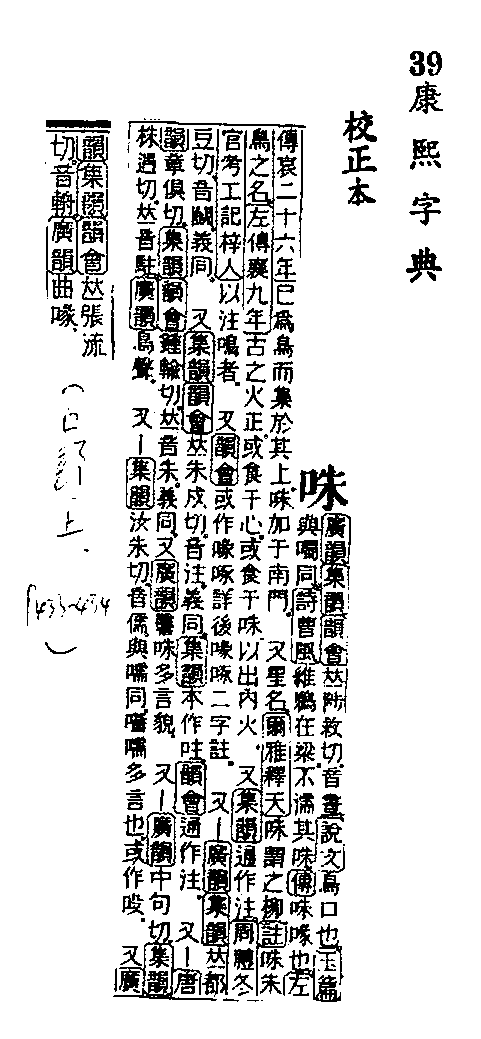 39
康熙字典
校正本
咮
廣韻集韻韻會𠀤陟救切音晝說文鳥口也玉篇
與噣同詩曹風維鵜在梁不濡其咮傳咮喙也左
傳哀二十六年已為鳥而集於其上咮加于南門 又星名爾雅釋天咮謂之柳註咮朱
鳥之名左傳襄九年古之火正或食于心或食于咮以出內火 又集韻通作注周禮冬
官考工記梓人以注鳴者 又韻會或作喙啄詳後喙啄二字註 又一廣韻集韻𠀤都
豆切音鬭義同 又集韻韻會𠀤朱戍切音注義同集韻本作吐韻會通作注 又一唐
韻章俱切集韻韻會鍾輸切𠀤音朱義同又廣韻咮多言貌 又一廣韻中句切集韻
株遇切𠀤音駐廣韻鳥聲 又一集韻汝朱切音儒與嚅同囁嚅多言也或作吺 又廣
韻集韻韻會𠀤張流
切音輈廣韻曲喙
上
433~434